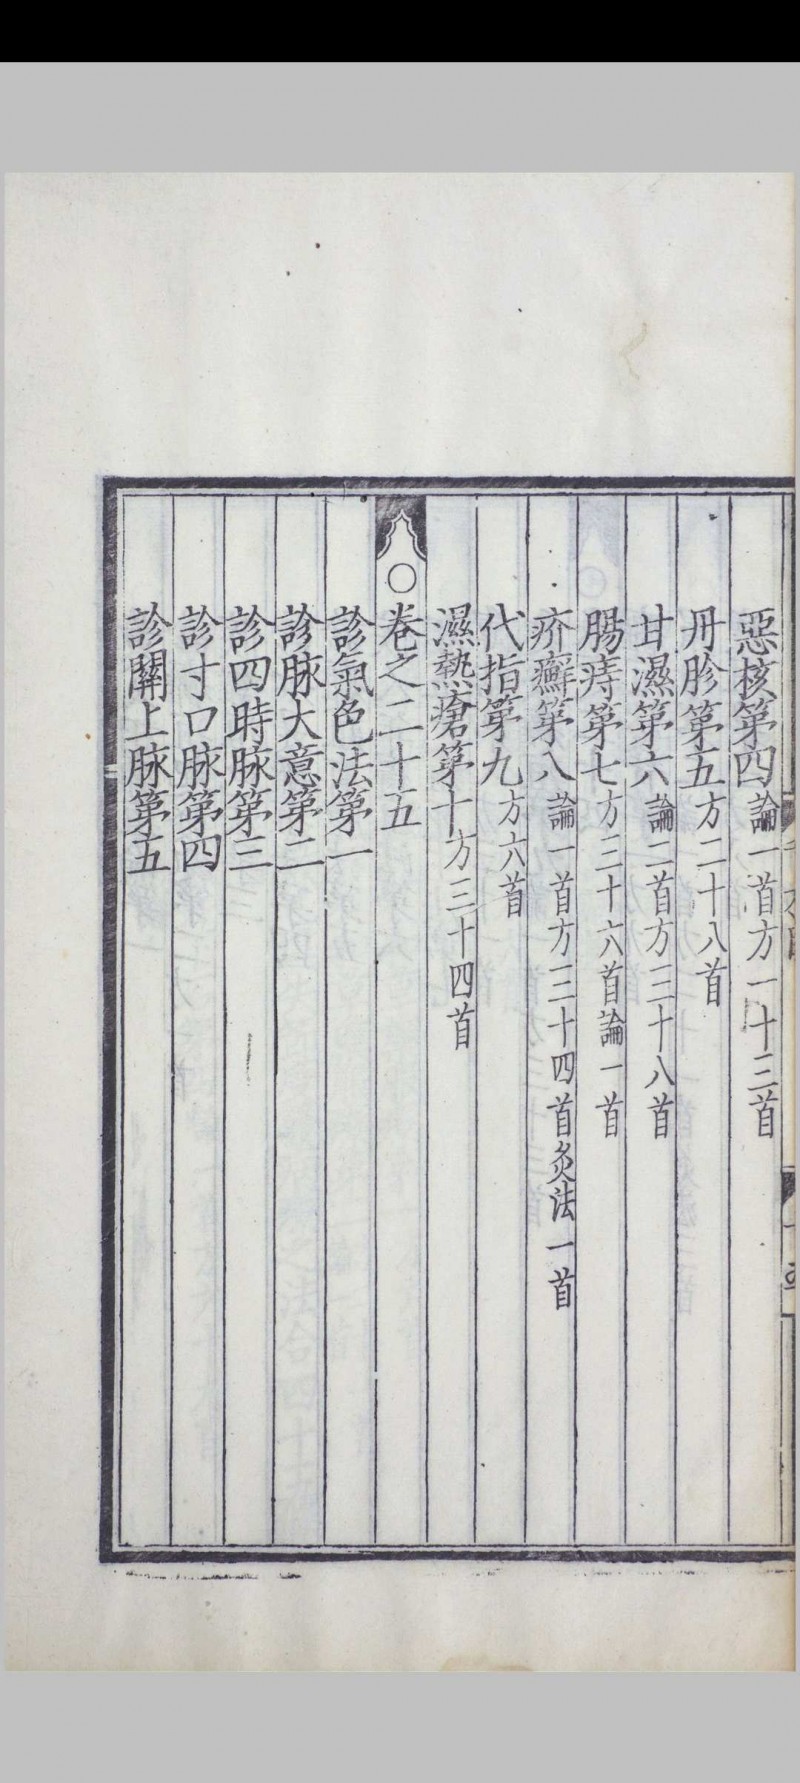 惡核第四論一首方一十三首
丹胗第五方二十八首
甘濕第六論二首方三十八首
腸痔第七方三十六首論一首
疥癬第八論一首方三十四首灸法一首
代指第九方六首
濕熱瘡第十方三十四首
○卷之二十五
診氣色法第一
診脉大意第二
診四時脉第三
診寸口脉第四
診關上脉第五